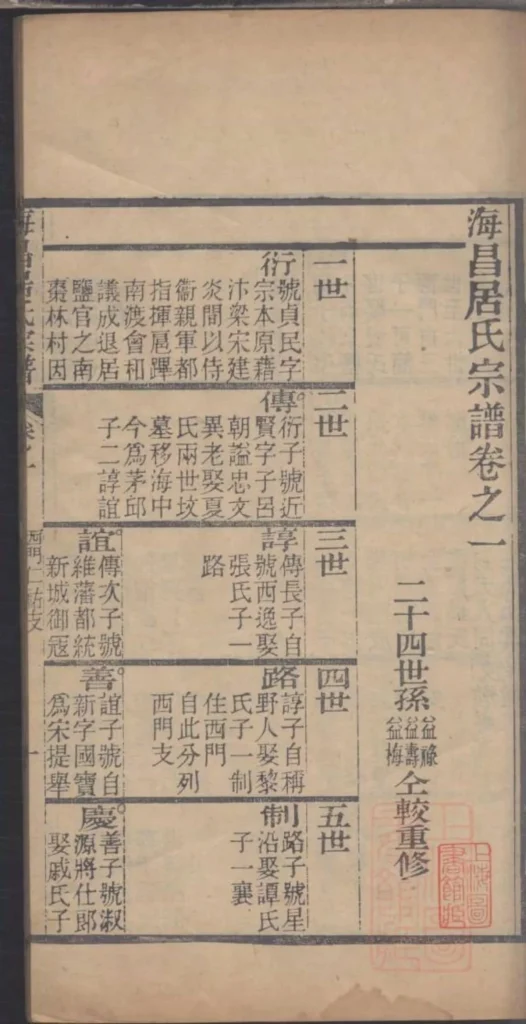 海昌居氏宗譜卷之一
二十四世孫
益祿
益壽
益梅
仝較重修
上海圖
書館藏
一世
衍
號貞民字
宗本原藉
汴梁宋建
炎間以侍
衞親軍都
指揮扈蹕
南渡會和
議成退居
鹽官之南
棗林村因
二世
傳
衍子號近
賢字子呂
朝謚忠文
異老娶夏
氏兩世坟
墓移海中
今爲茅邱
子二諄誼
三世
諄
傳長子自
號西逸娶
張氏子一
路
誼
傳次子號
維藩都統
新城御冦
四世
路
諄子自稱
野人娶黎
氏子一制
住西門
自此分列
西門支
善
誼子號自
新字國寶
爲宋提舉
五世
制
路子號星
沿娶譚氏
子一襄
慶
善子號淑
源將仕郎
娶戚氏子
海昌居氏宗譜
卷之一
西門仁支
一